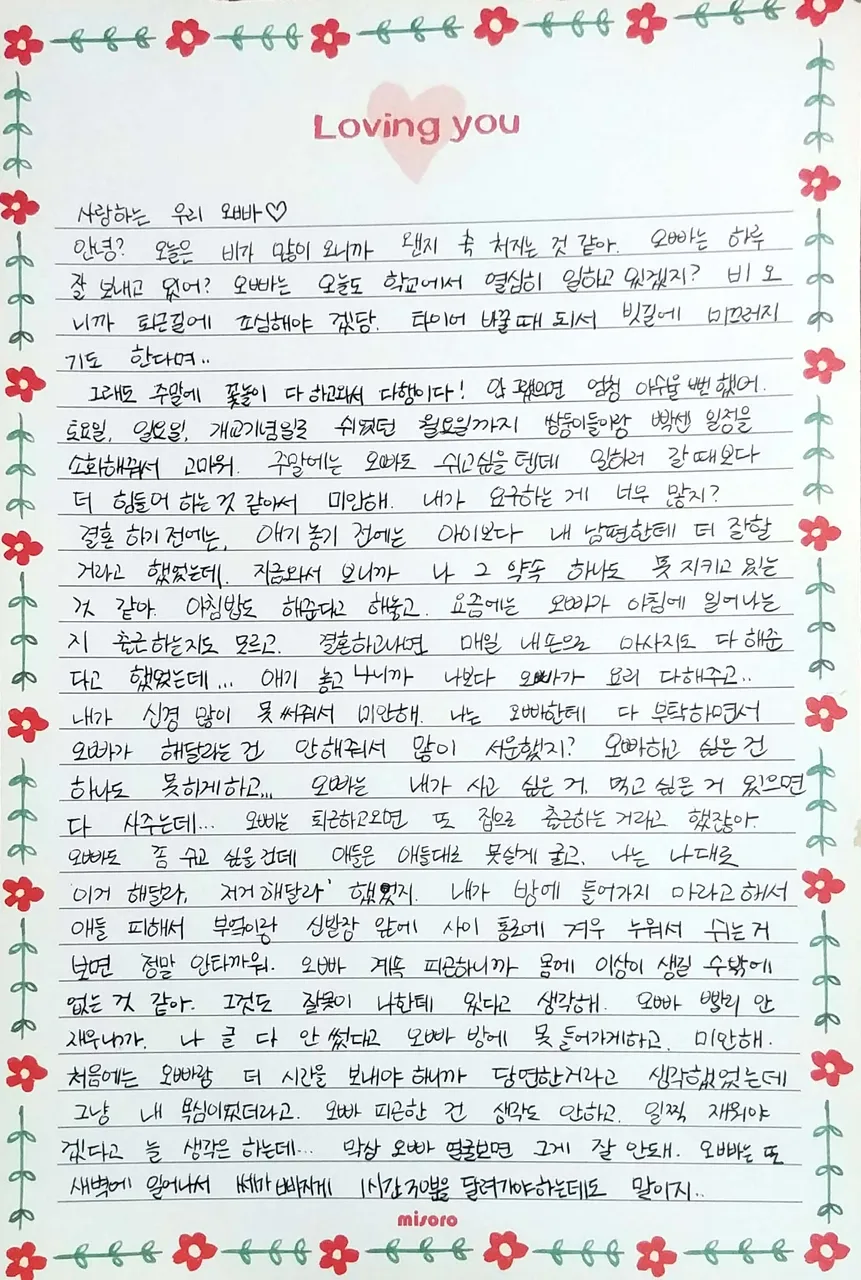 Loving you
사랑하는 우리 오빠♡
안녕? 오늘은 비가 많이 오니까 왠지 축 처지는 것 같아. 오빠는 하루
잘 보내고 있어? 오빠는 오늘도 학교에서 열심히 일하고 있겠지? 비 오
니까 퇴근길에 조심해야 겠당. 타이어 바꿀 때 되서 빗길에 미끄러지
기도 한다며..
그래도 주말에 꽃놀이 다 하고와서 다행이다! 안 그랬으면 엄청 아쉬울 뻔 했어.
토요일, 일요일, 개교기념일로 쉬었던 월요일까지 쌍둥이들이랑 빡센 일정을
소화해줘서 고마워. 주말에는 오빠도 쉬고싶을 텐데 일하러 갈 때보다
더 힘들어 하는 것 같아서 미안해. 내가 요구하는 게 너무 많지?
결혼 하기 전에는, 애기 놓기 전에는 아이보다 내 남편한테 더 잘할
거라고 했었는데. 지금와서 보니까 나 그 약속 하나도 못 지키고 있는
것 같아. 아침밥도 해준다고 해놓고. 요즘에는 오빠가 아침에 일어나는
지 출근하는지도 모르고. 결혼하고나면 매일 내손으로 마사지도 다 해준
다고 했었는데... 애기 놓고 나니까 나보다 오빠가 요리 다해주고..
내가 신경 많이 못 써줘서 미안해. 나는 오빠한테 다 부탁하면서
오빠가 해달라는 건 안해줘서 많이 서운했지? 오빠하고 싶은 건
하나도 못하게하고,,, 오빠는 내가 사고 싶은 거, 먹고 싶은 거 있으면
다 사주는데... 오빠는 퇴근하고오면 또 집으로 출근하는 거라고 했잖아.
오빠도 좀 쉬고 싶을 건데 애들은 애들대로 못살게 굴고, 나는 나대로
'이거 해달라, 저거 해달라' 했었지. 내가 방에 들어가지 마라고 해서
애들 피해서 부엌이랑 신발장 앞에 사이 통로에 겨우 누워서 쉬는 거
보면 정말 안타까워. 오빠 계속 피곤하니까 몸에 이상이 생길 수밖에
없는 것 같아. 그것도 잘못이 나한테 있다고 생각해. 오빠 빨리 안
재우니까. 나 글 다 안 썼다고 오빠 방에 못 들어가게하고. 미안해.
처음에는 오빠랑 더 시간을 보내야 하니까 당연한거라고 생각했었는데
그냥 내 욕심이었더라고. 오빠 피곤한 건 생각도 안하고. 일찍 재워야
겠다고 늘 생각은 하는데... 막상 오빠 얼굴보면 그게 잘 안돼. 오빠는 또
새벽에 일어나서 쎄가 빠지게 1시간 30분을 달려가야하는데도 말이지..
misoro